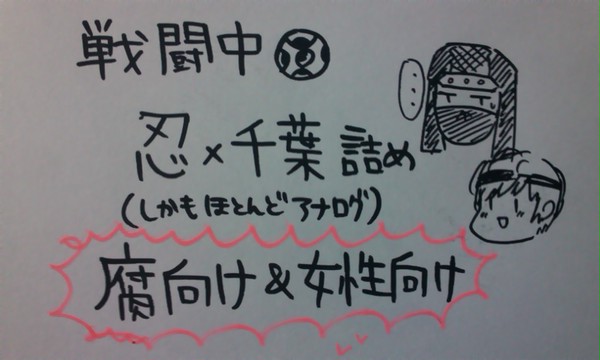 戦闘中
忍×千葉 詰め
(しかもほとんどアナログ)
腐向け&女性向け
…